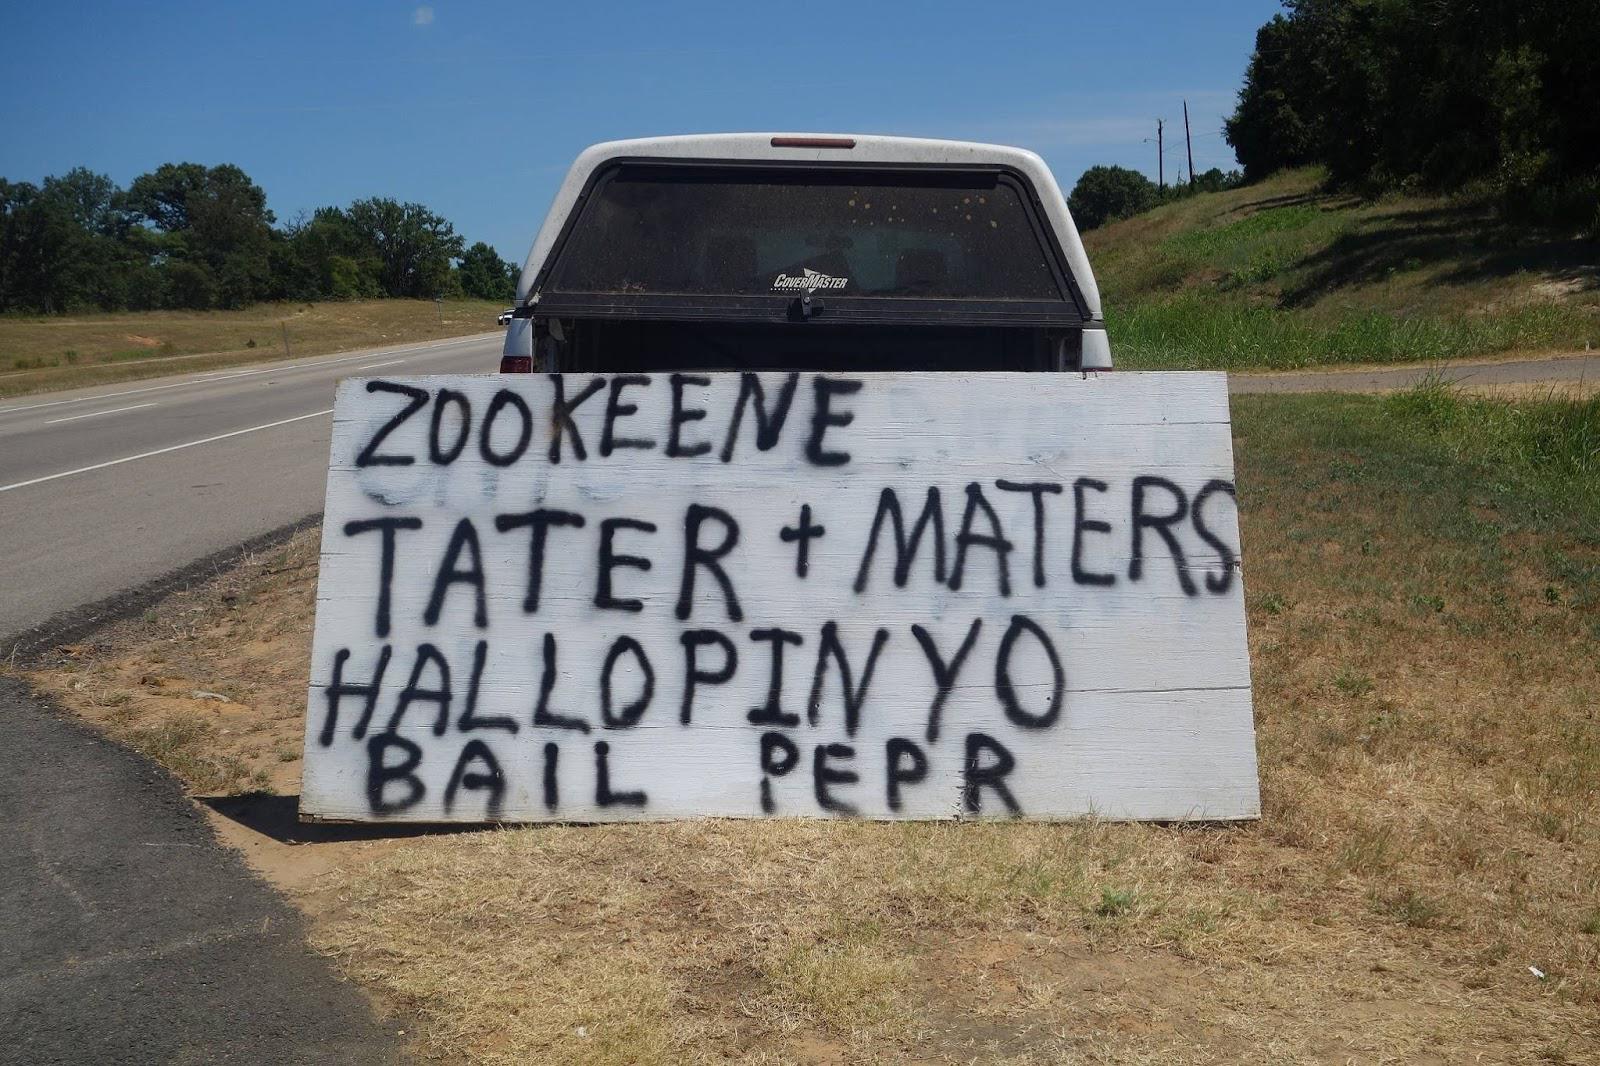 COVERMASTER
ZOOKEENE
TATER + MATERS
HALLOPINYO
BAIL PEPR